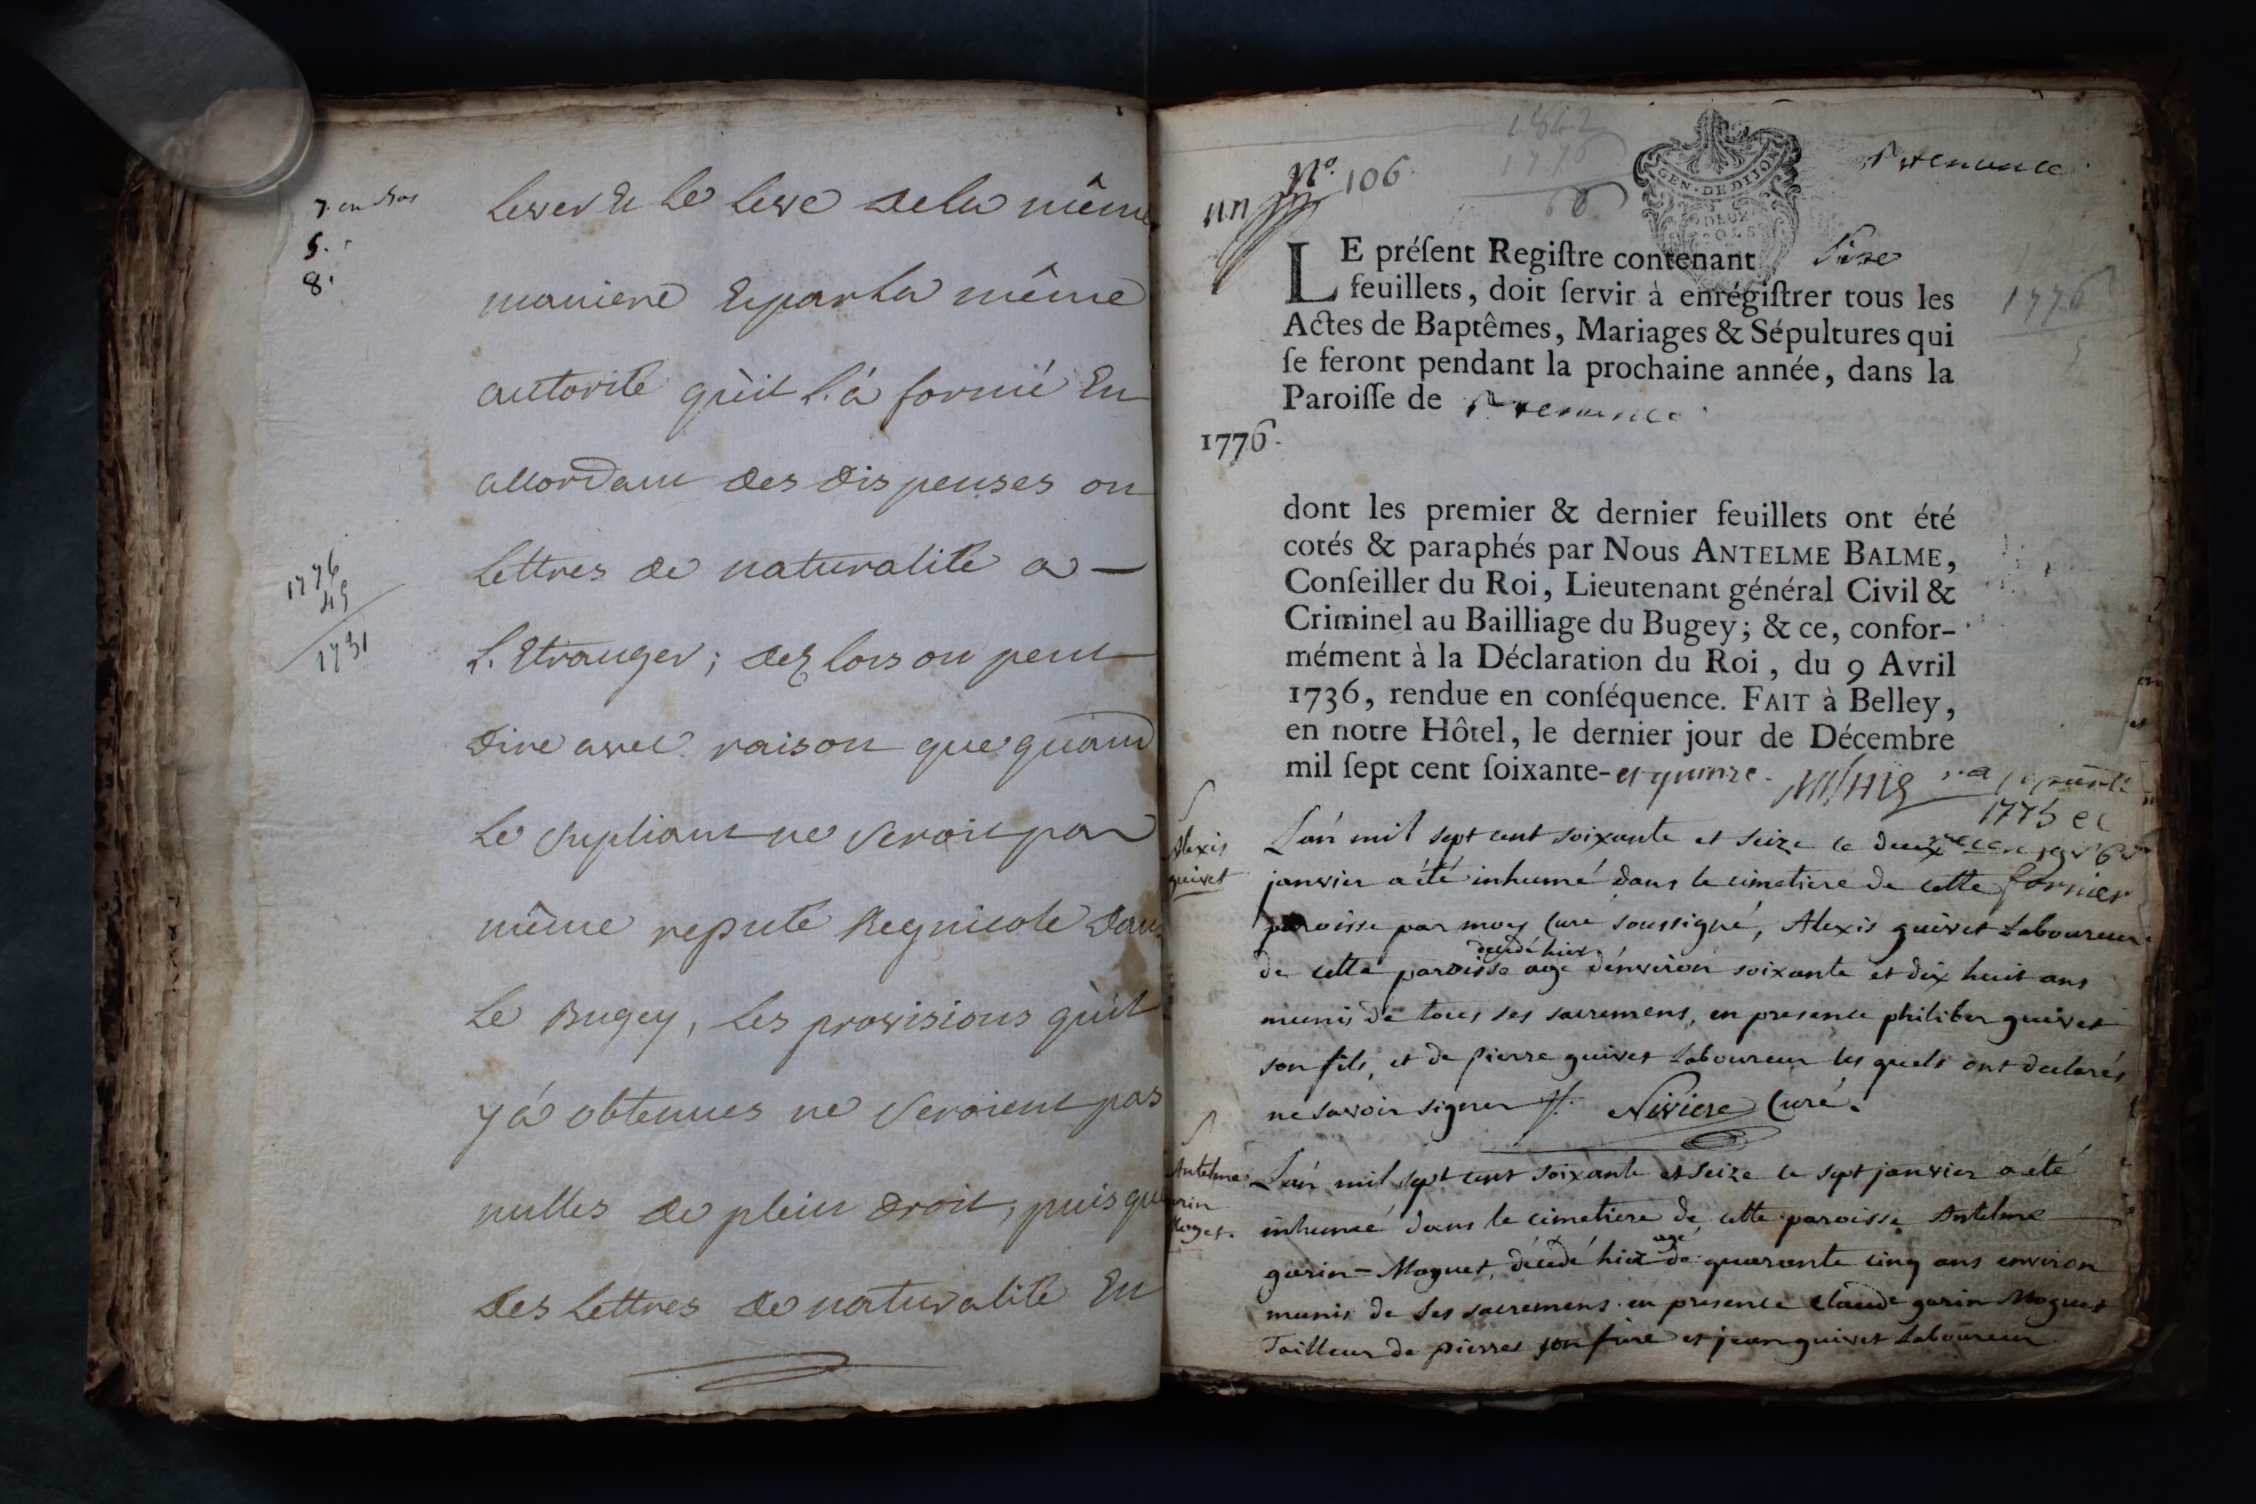 7. en bas
5.
8.
lever Et le leve dela même
maniere Et par la même
autorité qu'il l'a formé En
accordant des dispenses ou
lettres de naturalité a —
L'Etranger ; dez lors on peut
dire avec raison que quand
le supliant ne seroit pas
même reputé Regnicole dans
le Bugey, les provisions qu'il
y a obtenues ne seroient pas
nulles de plein droit, puisque
des lettres de naturalité En
1776
45
1731
N.º 106.
1842
1776
GEN. DE DIJON
LE préſent Regiſtre contenant Six
feuillets, doit ſervir à enrégiſtrer tous les
Actes de Baptêmes, Mariages & Sépultures qui
ſe feront pendant la prochaine année, dans la
Paroiſſe de
1776.
1776
dont les premier & dernier feuillets ont été
cotés & paraphés par Nous ANTELME BALME,
Conſeiller du Roi, Lieutenant général Civil &
Criminel au Bailliage du Bugey; & ce, confor-
mément à la Déclaration du Roi, du 9 Avril
1736, rendue en conſéquence. FAIT à Belley,
en notre Hôtel, le dernier jour de Décembre
mil ſept cent ſoixante-et quinze.
1775 et
Alexis
guivet
L'an mil sept cent soixante et seize le deux
janvier a été inhumé dans le cimetiere de cette
paroisse par moy curé soussigné, Alexis guivet Laboureur
de cette paroisse decedé hier agé d'environ soixante et dix huit ans
munis de tous ses sacremens, en presence philiber guivet
son fils, et de pierre guivet Laboureur les quels ont declarés
ne savoir signer Niviere Curé.
Antelme
garin
Moguet.
L'an mil sept cent soixante et seize le sept janvier a été
inhumé dans le cimetiere de cette paroisse Antelme
garin-Moguet, décedé hier agé de quarante cinq ans environ
munis de ses sacremens en presence Claude garin Moguet
Tailleur de pierres son frere et jean guivet Laboureur